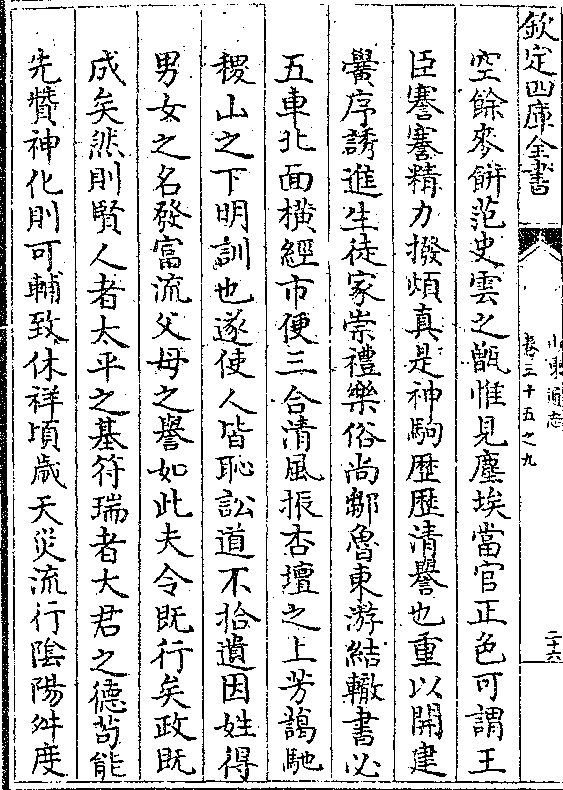 欽定四庫全書
山東通志
卷三十五之九
二十六
空餘麥餅范史雲之甑惟見塵埃當官正色可謂王
臣謇謇精力撥煩真是神駒歴歴清譽也重以開建
黌序誘進生徒家崇禮樂俗尚鄒魯東游結轍書必
五車北面橫經市便三合清風振杏壇之上芳藹馳
稷山之下明訓也遂使人皆恥訟道不拾遺因姓得
男女之名發富流父母之譽如此夫令既行矣政既
成矣然則賢人者太平之基符瑞者大君之德茍能
先贊神化則可輔致休祥頃歲天災流行陰陽舛度